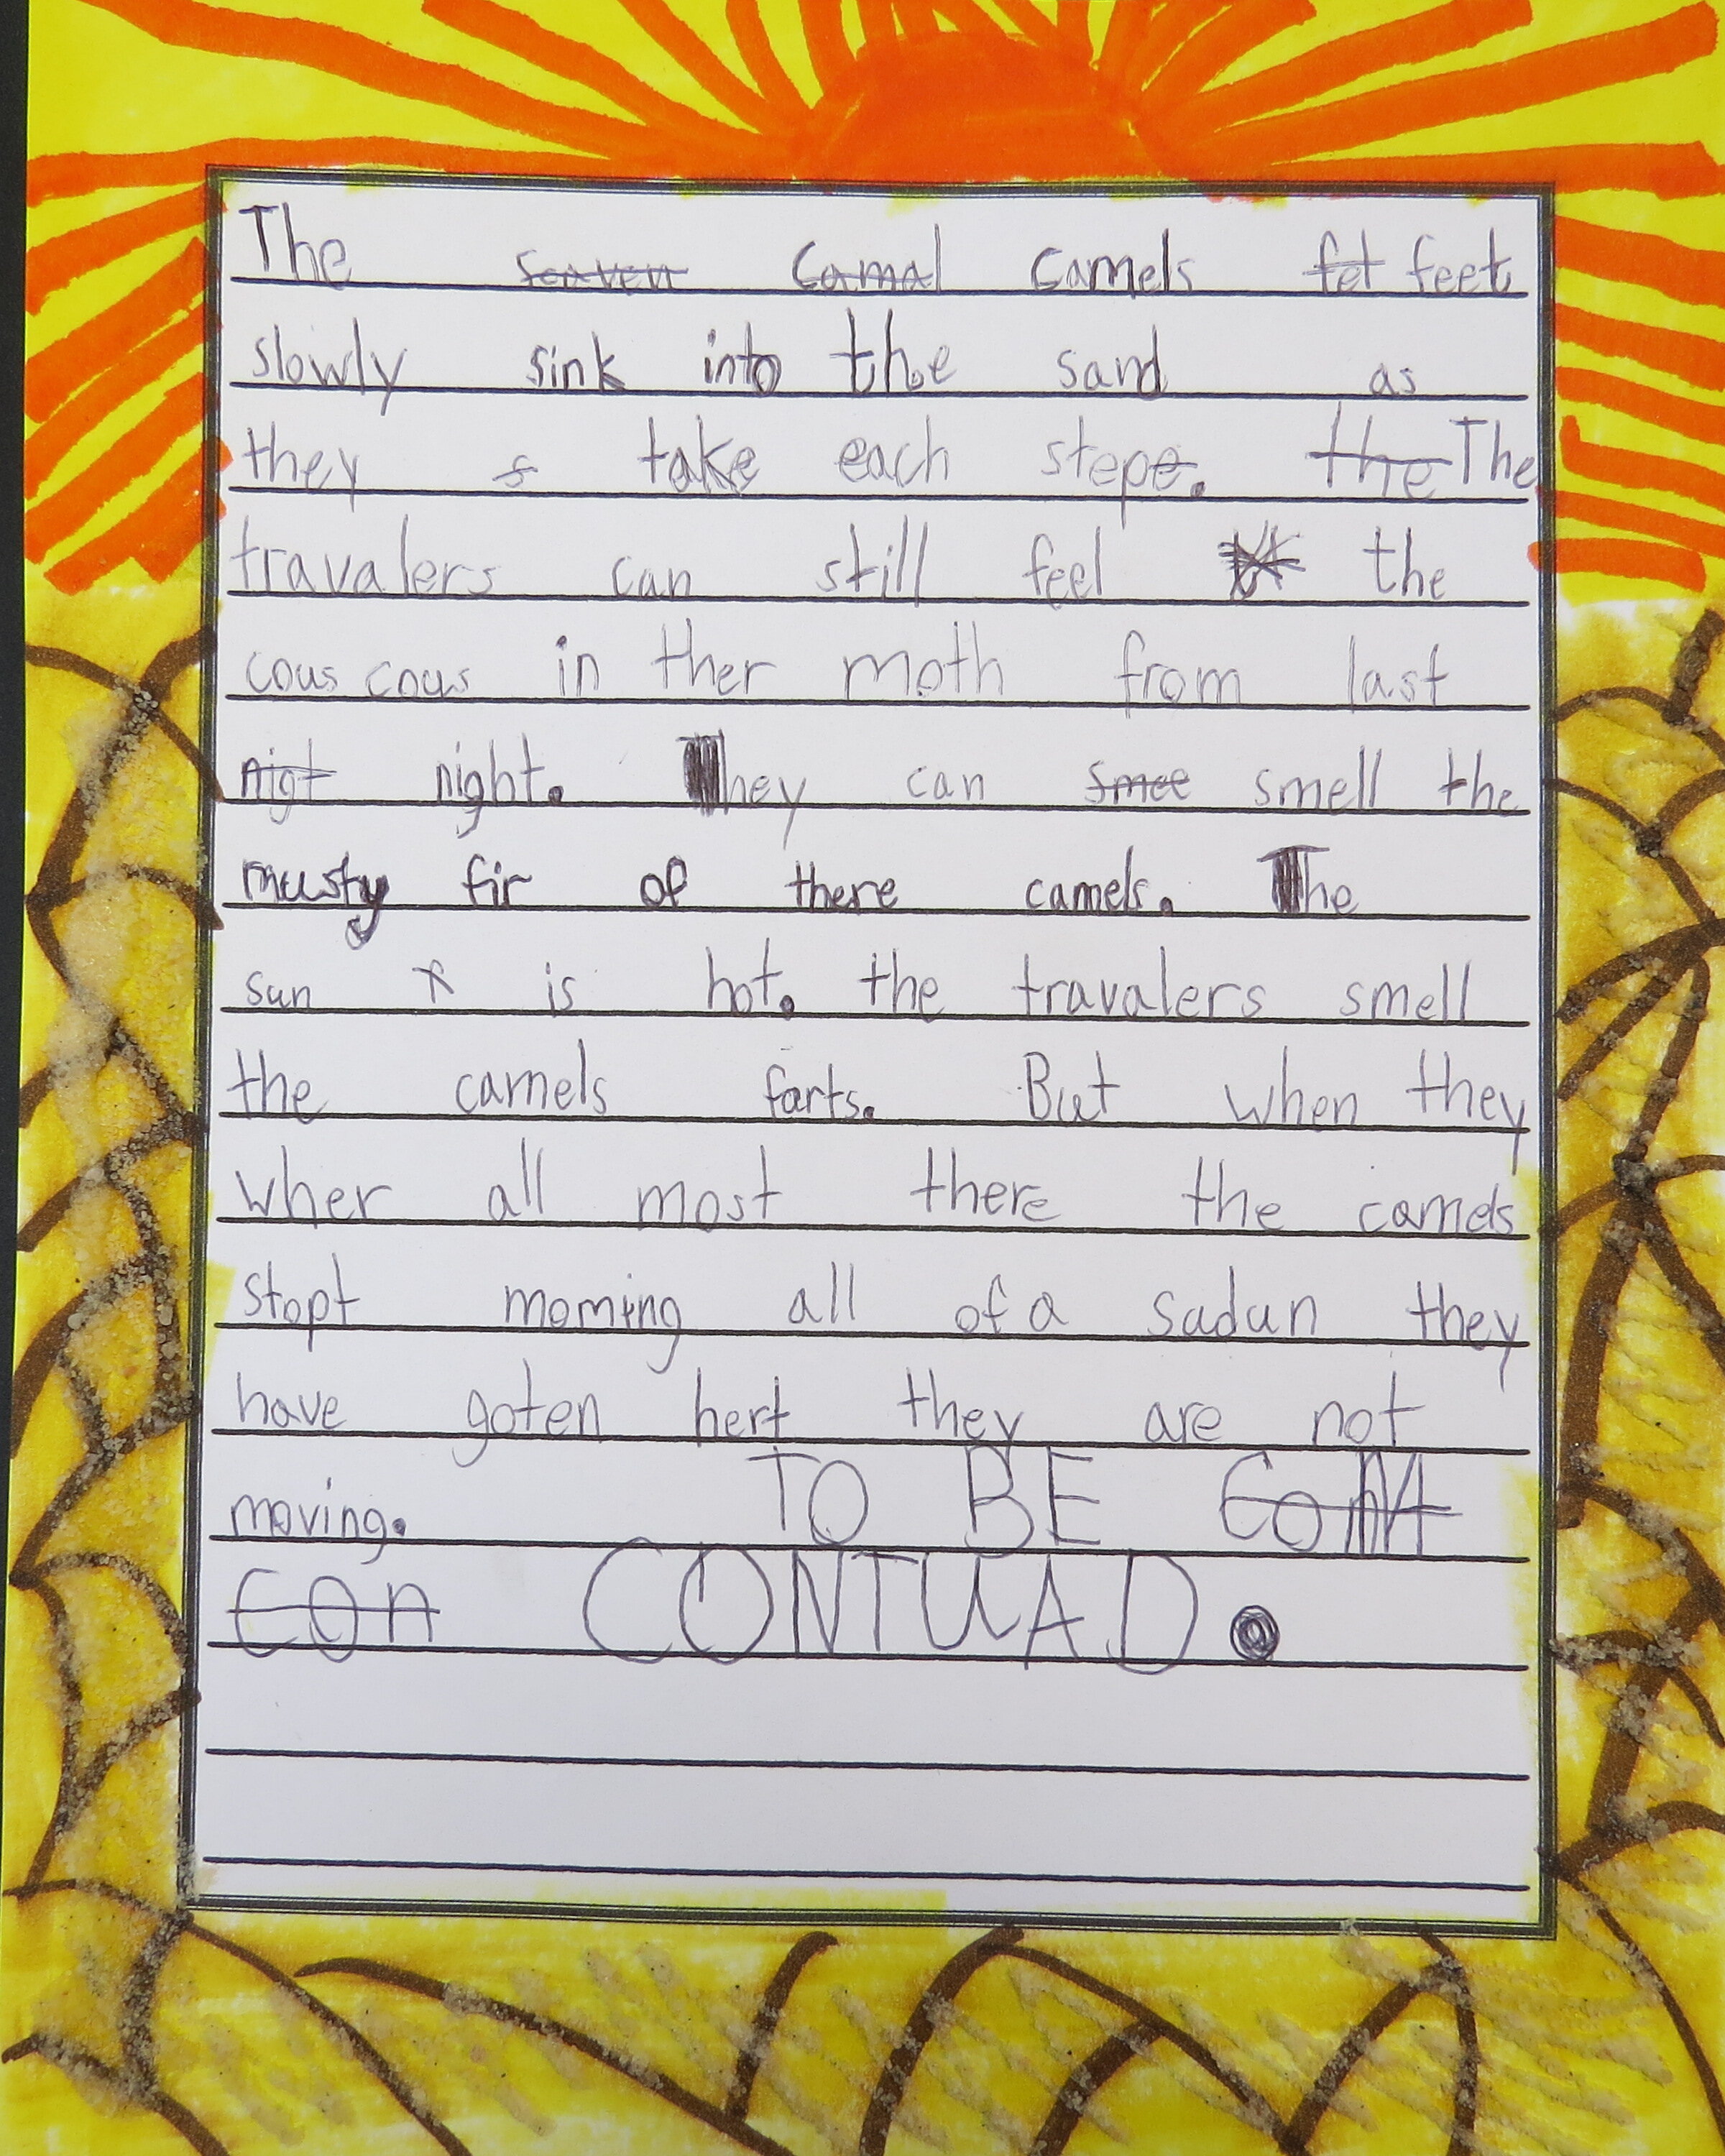 The seaven camal camels fet feet
slowly sink into the sand as
they s take each stepe. the The
travalers can still feel the
cous cous in ther moth from last
nigt night. They can smee smell the
musty fir of there camels. The
sun is hot. the travalers smell
the camels farts. But when they
wher all most there the camels
stopt moming all of a sadun they
have goten hert they are not
moving. TO BE
Con CONTUAD.